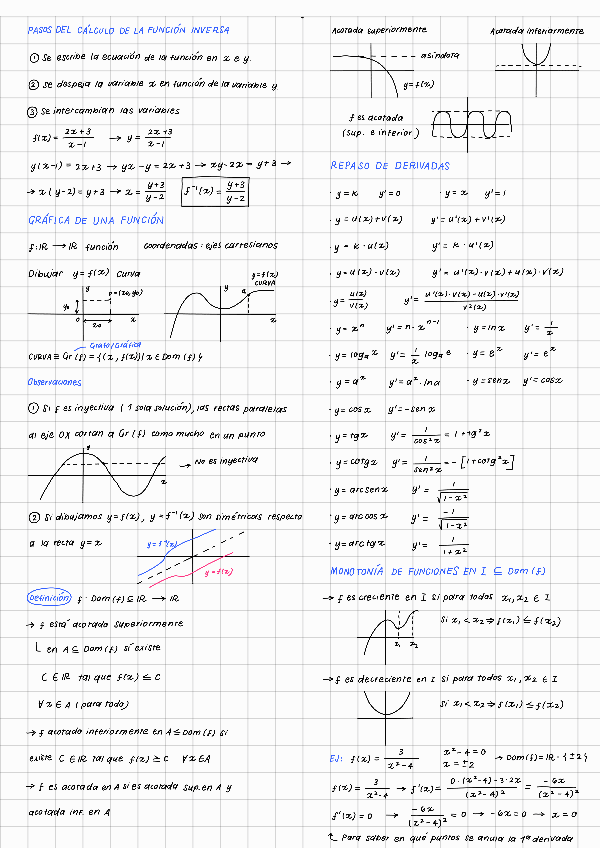 PASOS DEL CÁLCULO DE LA FUNCIÓN INVERSA
① Se escribe la ecuación de la función en x e y.
② se despeja la variable x en función de la variable y
③ Se intercambian las variables
f(x) = (2x+3)/(x-1) → y = (2x+3)/(x-1)
y(x-1) = 2x+3 → yx-y = 2x+3 → xy-2x = y+3 →
→ x(y-2) = y+3 → x = (y+3)/(y-2) f⁻¹(x) = (y+3)/(y-2)
GRÁFICA DE UNA FUNCIÓN
f: IR → IR función coordenadas: ejes cartesianos
Dibujar y = f(x) curva
y p = (x₀, y₀) y₀ 0 x₀ x
y a y = f(x) CURVA x
Grafo/Gráfica
CURVA ≡ Gr(f) = {(x, f(x)) | x ∈ Dom(f)}
Observaciones
① Si f es inyectiva (1 sola solución), las rectas paralelas
al eje OX cortan a Gr(f) como mucho en un punto
y → No es inyectiva x
② Si dibujamos y = f(x), y = f⁻¹(x) son simétricas respecto
a la recta y = x
y = f⁻¹(x)
y = f(x)
Definición f: Dom(f) ⊆ IR → IR
→ f está acotada superiormente
en A ⊆ Dom(f) si existe
C ∈ IR tal que f(x) ≤ C
∀x ∈ A (para todo)
→ f acotada inferiormente en A ⊆ Dom(f) si
existe C ∈ IR tal que f(x) ≥ C ∀x ∈ A
→ f es acotada en A si es acotada sup. en A y
acotada inf. en A
Acotada superiormente
asíndota
y = f(x)
Acotada inferiormente
f es acotada
(sup. e inferior)
REPASO DE DERIVADAS
· y = K y' = 0 · y = x y' = 1
· y = u(x) + v(x) y' = u'(x) + v'(x)
· y = K · u(x) y' = K · u'(x)
· y = u(x) · v(x) y' = u'(x) · v(x) + u(x) · v'(x)
· y = u(x)/v(x) y' = (u'(x) · v(x) - u(x) · v'(x))/v²(x)
· y = xⁿ y' = n · xⁿ⁻¹ · y = ln x y' = 1/x
· y = logₐ x y' = 1/x logₐ e · y = eˣ y' = eˣ
· y = aˣ y' = aˣ · ln a · y = sen x y' = cos x
· y = cos x y' = -sen x
· y = tg x y' = 1/cos²x = 1 + tg²x
· y = cotg x y' = 1/sen²x = -[1 + cotg²x]
· y = arcsen x y' = 1/√(1-x²)
· y = arccos x y' = -1/√(1-x²)
· y = arctg x y' = 1/(1+x²)
MONOTONÍA DE FUNCIONES EN I ⊆ Dom(f)
→ f es creciente en I si para todos x₁, x₂ ∈ I
si x₁ < x₂ ⇒ f(x₁) ≤ f(x₂)
x₁ x₂
→ f es decreciente en I si para todos x₁, x₂ ∈ I
si x₁ < x₂ ⇒ f(x₁) ≤ f(x₂)
EJ: f(x) = 3/(x²-4) x²-4 = 0 x = ±2 → Dom(f) = IR - {±2}
f(x) = 3/(x²-4) → f'(x) = (0·(x²-4) - 3·2x)/(x²-4)² = -6x/(x²-4)²
f'(x) = 0 → -6x/(x²-4)² = 0 → -6x = 0 → x = 0
Para saber en qué puntos se anula la 1ª derivada